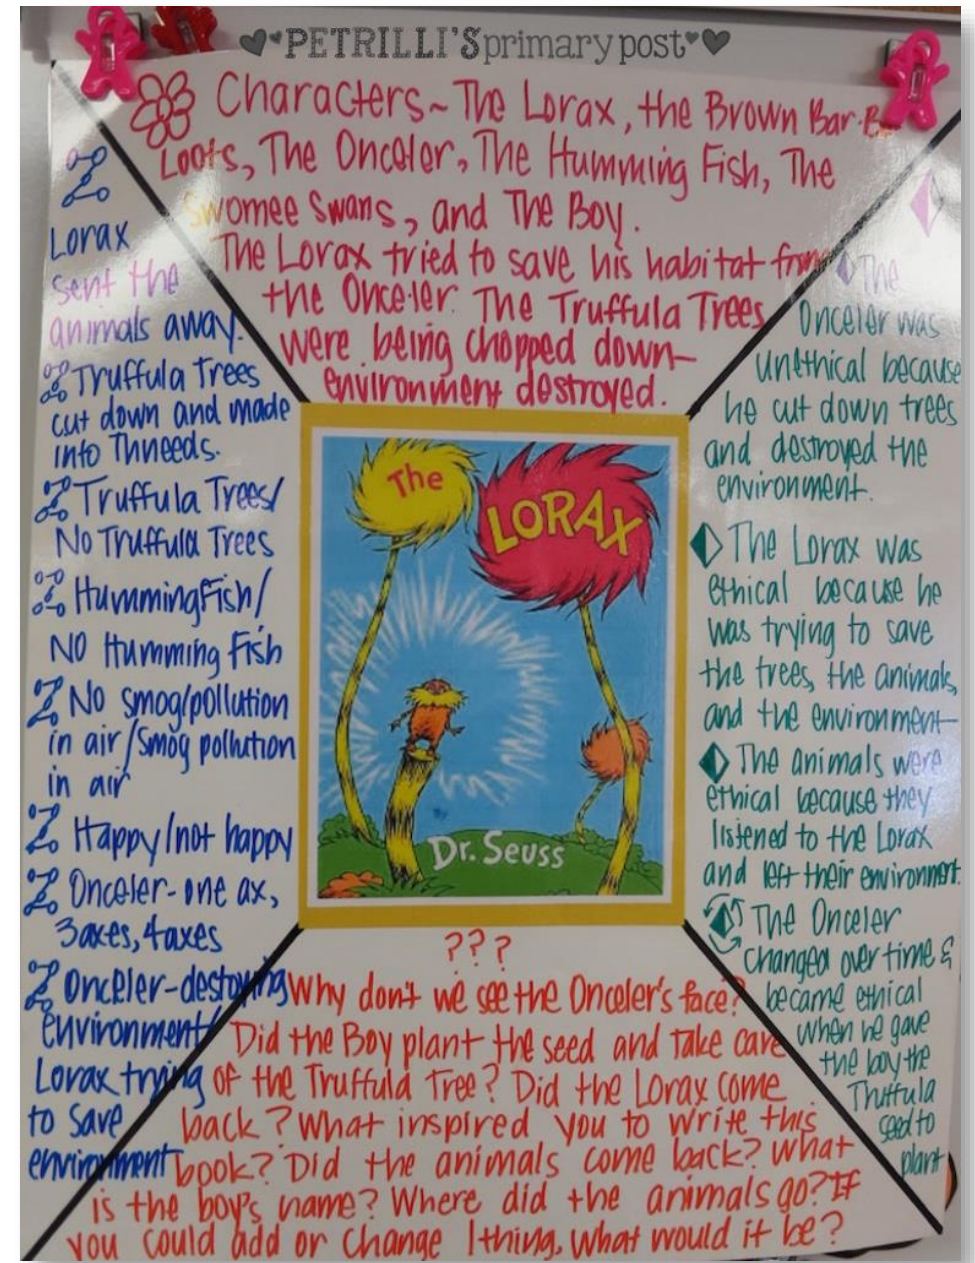 PETRILLI'S primary post
Characters~ The Lorax, the Brown Bar-Ba
Loots, The Onceler, The Humming Fish, The
Swomee Swans, and The Boy.
The Lorax tried to save his habitat from
the Once-ler. The Truffula Trees
were being chopped down-
environment destroyed.
Lorax
sent the
animals away.
Truffula Trees
cut down and made
into Thneeds.
Truffula Trees/
No Truffula Trees
Humming Fish/
NO Humming Fish
No smog/pollution
in air/smog pollution
in air
Happy/not happy
Onceler-one ax,
3axes, 4axes
Onceler-destroying
environment/
Lorax trying
to save
environment
The
LORAX
By
Dr. Seuss
The
Onceler was
unethical because
he cut down trees
and destroyed the
environment.
The Lorax was
ethical because he
was trying to save
the trees, the animals,
and the environment
The animals were
ethical because they
listened to the Lorax
and left their environment.
The Onceler
changed over time &
became ethical
when he gave
the boy the
Truffula
seed to
plant
???
Why don't we see the Onceler's face?
Did the Boy plant the seed and take care
of the Truffula Tree? Did the Lorax come
back? What inspired you to write this
book? Did the animals come back? What
is the boy's name? Where did the animals go? If
you could add or change 1thing, what would it be?